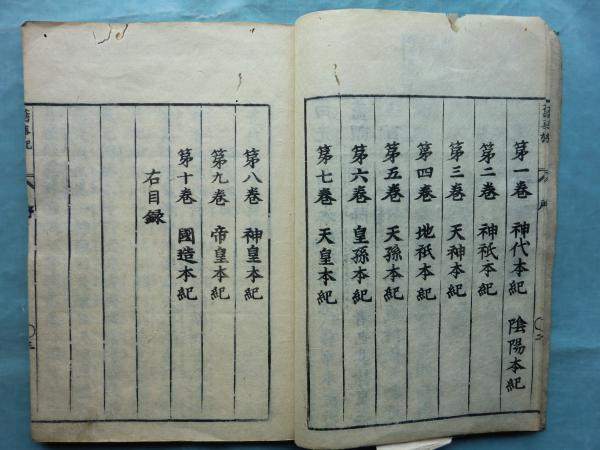 第一卷 神代本紀 陰陽本紀
第二卷 神祇本紀
第三卷 天神本紀
第四卷 地祇本紀
第五卷 天孫本紀
第六卷 皇孫本紀
第七卷 天皇本紀
第八卷 神皇本紀
第九卷 帝皇本紀
第十卷 國造本紀
右目録
舊事紀
序
三